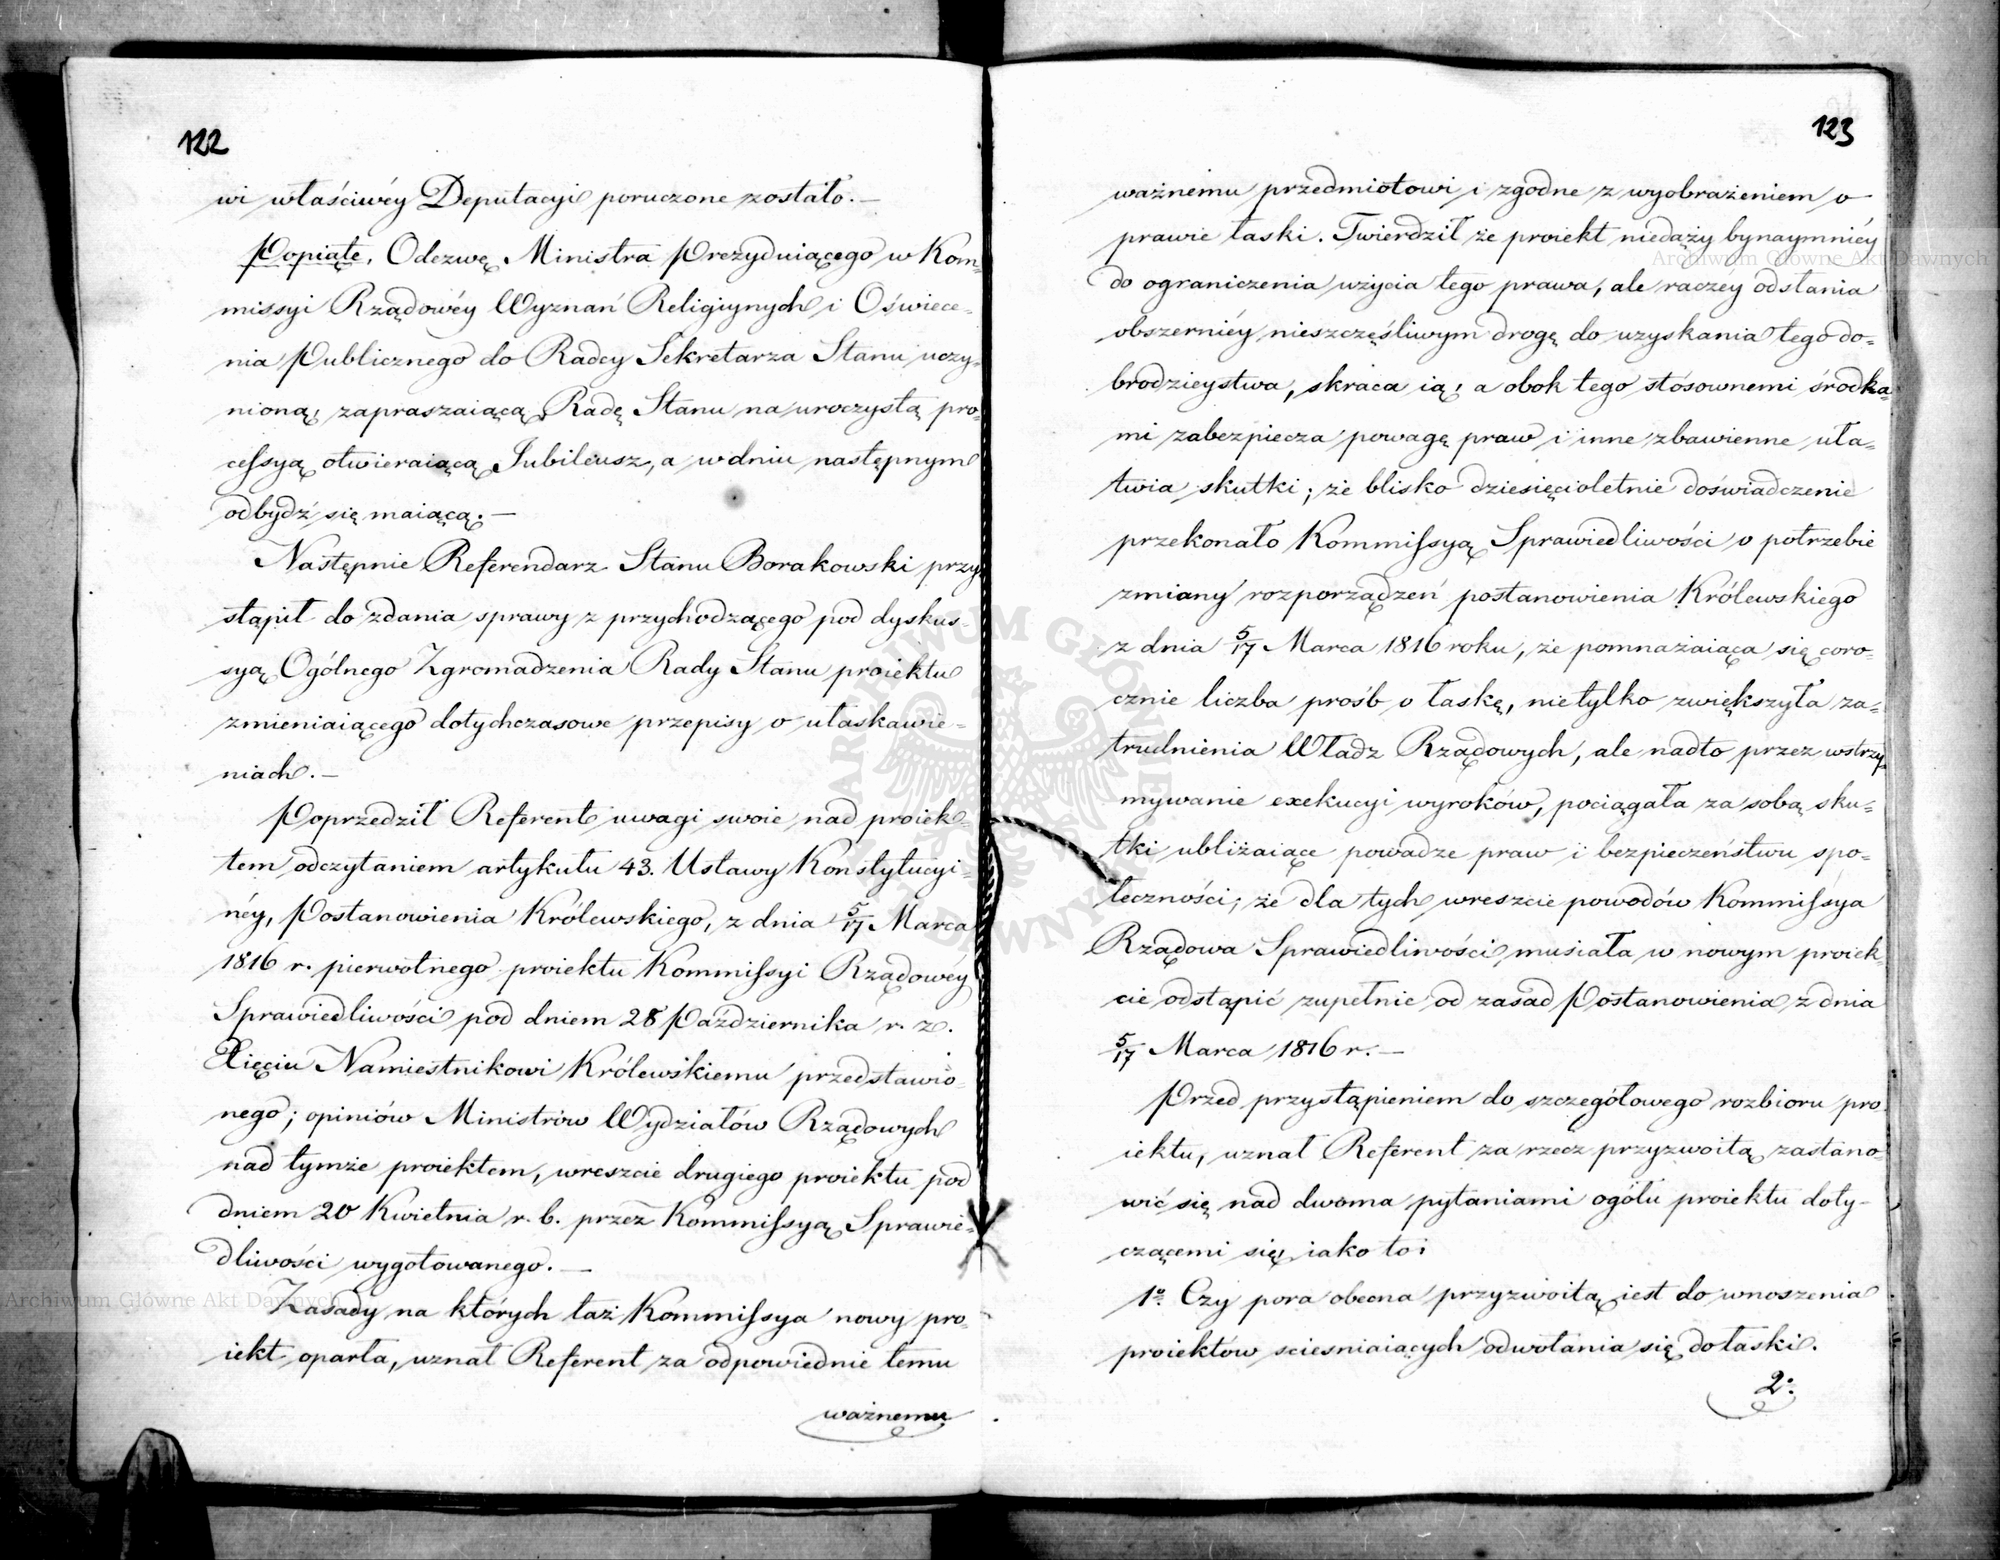 122
wi właściwéy Deputacyi poruczone zostało.—
Popiąte, Odezwę Ministra Prezyduiącego w Kom-
missyi Rządowéy Wyznań Religiynych i Oświece-
nia Publicznego do Radcy Sekretarza Stanu uczy-
nioną, zapraszaiącą Radę Stanu na uroczystą pro-
cessyą otwieraiącą Jubileusz, a w dniu następnym
odbydź się maiącą.—
Następnie Referendarz Stanu Borakowski przy-
stąpił do zdania sprawy z przychodzącego pod dyskus-
syą Ogólnego Zgromadzenia Rady Stanu proiektu
zmieniaiącego dotychczasowe przepisy o ułaskawie-
niach.—
Poprzedził Referent uwagi swoie nad proiek-
tem odczytaniem artykułu 43. Ustawy Konstytucyi-
néy, Postanowienia Królewskiego, z dnia 5/17 Marca
1816 r. pierwotnego proiektu Kommissyi Rządowéy
Sprawiedliwości pod dniem 28 Października r. z.
Xięciu Namiestnikowi Królewskiemu przedstawio-
nego; opiniów Ministrów Wydziałów Rządowych
nad tymże proiektem, wreszcie drugiego proiektu pod
dniem 20 Kwietnia r. b. przez Kommissyą Sprawie-
dliwości wygotowanego.—
Zasady na których taż Kommissya nowy pro-
iekt oparła, uznał Referent za odpowiednie temu
ważnemu
123
ważnemu przedmiotowi i zgodne z wyobrażeniem o
prawie łaski. Twierdził że proiekt niedąży bynaymniéy
do ograniczenia użycia tego prawa, ale raczéy odsłania
obszerniéy nieszczęśliwym drogę do uzyskania tego do-
brodzieystwa, skraca ią, a obok tego stósownemi środka-
mi zabezpiecza powagę praw i inne zbawienne uła-
twia skutki; że blisko dziesięcioletnie doświadczenie
przekonało Kommissyą Sprawiedliwości o potrzebie
zmiany rozporządzeń postanowienia Królewskiego
z dnia 5/17 Marca 1816 roku, że pomnażaiąca się coro-
cznie liczba prośb o łaskę, nietylko zwiększyła za-
trudnienia Władz Rządowych, ale nadto przez wstrzy-
mywanie exekucyi wyroków, pociągała za sobą sku-
tki ubliżaiące powadze praw i bezpieczeństwu spo-
łeczności; że dla tych wreszcie powodów Kommissya
Rządowa Sprawiedliwości, musiała w nowym proiek-
cie odstąpić zupełnie od zasad Postanowienia z dnia
5/17 Marca 1816 r.—
Przed przystąpieniem do szczegółowego rozbioru pro
iektu, uznał Referent za rzecz przyzwoitą zastano-
wić się nad dwoma pytaniami ogółu proiektu doty-
czącemi się, iako to:
1o. Czy pora obecna przyzwoitą iest do wnoszenia
proiektów ścieśniaiących odwołania się do łaski.
2o.
ARCHIWUM GŁÓWNE AKT DAWNYCH
Archiwum Główne Akt Dawnych
Archiwum Główne Akt Dawnych